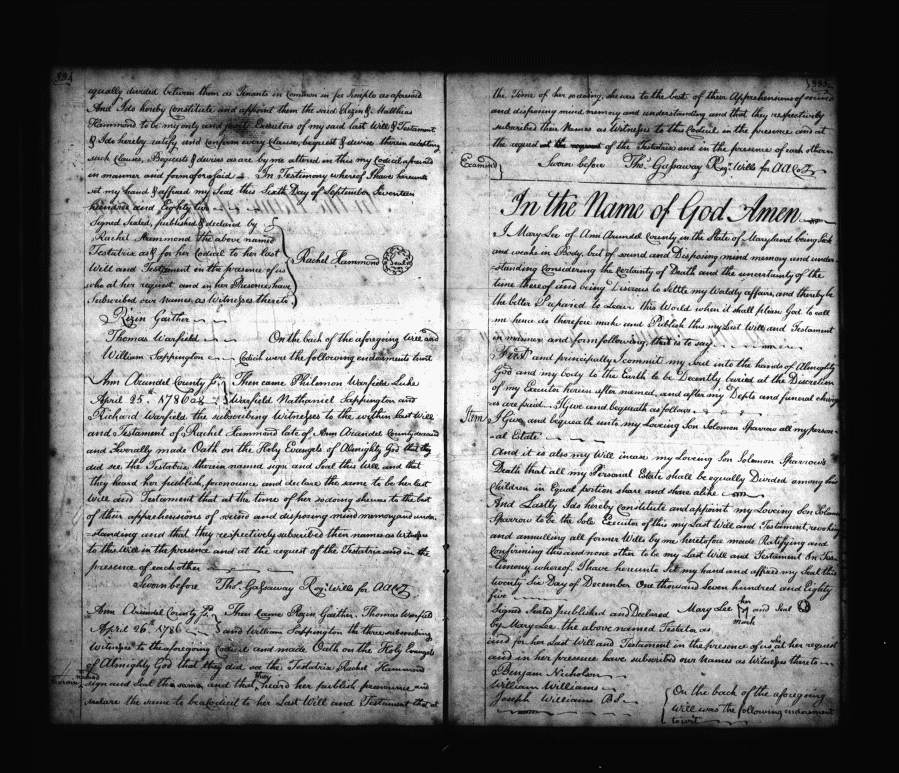 334
equally divided between them as Tenants in Common in fee simple as aforesaid
And I do hereby Constitute and appoint them the said Rezin & Matthias
Hammond to be my only and joint Executors of my said last Will & Testament
& I do hereby ratify and confirm every Clause, bequest & devise therein excepting
such Clauses, Bequests & devises as are by me altered in this my Codicil aforesaid
in manner and form aforesaid. In Testimony whereof I have hereunto
set my hand & affixed my Seal this Sixth Day of September Seventeen
hundred and Eighty
Signed Sealed, published & declared by
Rachel Hammond the above named
Testatrix as & for her Codicil to her last
Will and Testament in the presence of us
who at her request and in her Presence have
Subscribed our Names as Witnesses thereto
Rachel Hammond Seal
Rezin Gaither
Thomas Warfield
William Sappington
On the back of the aforegoing Will and
Codicil were the following endorsments to wit
Ann Arundel County Ss.
April 25. 1786
Then came Philemon Warfield Luke
Warfield Nathaniel Sappington and
Richard Warfield the subscribing Witnesses to the within last Will
and Testament of Rachel Hammond late of Ann Arundel County deceased
and Severally made Oath on the Holy Evangels of Almighty God that they
did see the Testatrix therein named sign and Seal this Will and that
they heard her publish, pronounce and declare the same to be her last
Will and Testament that at the time of her so doing she was to the best
of their apprehensions of sound and disposing mind memory and under-
standing and that they respectively subscribed their names as Witnesses
to this Will in the presence and at the request of the Testatrix and in the
presence of each other
Sworn before Thos. Gassaway Regr. Wills for AA Coty
Ann Arundel County Ss.
April 26th 1786
Then Came Rezin Gaither, Thomas Warfield
and William Sappington the three subscribing
Witnesses to the aforegoing Codicil and made Oath on the Holy Evangels
of Almighty God that they did see the Testatrix Rachel Hammond
therein named
sign and Seal the same, and that they heard her publish pronounce and
declare the same to be a Codicil to her Last Will and Testament that at
335
the time of her so doing, she was to the best of their Apprehensions of sound
and disposing mind memory and understanding and that they respectively
subscribed their Names as Witnesses to this Codicil in the presence and at
the request at the request of the Testatrix and in the presence of each other
Examined
Sworn before Thos. Gassaway Regr. Wills for AA Coty
In the Name of God Amen
I Mary Lee of Ann Arundel County in the State of Maryland being Sick
and weak in Body, but of sound and Disposing mind memory and under-
standing Considering the Certainty of Death and the uncertainty of the
time thereof and being Desirous to Settle my Worldly affairs, and thereby be
the better Prepared to Leave this World when it shall please God to call
me hence do therefore make and Publish this my Last Will and Testament
in manner and form following, that is to say
First and principally I commit my Soul into the hands of Almighty
God and my body to the Earth to be Decently buried at the Discretion
of my Executor herein after named, and after my Debts and funeral charges
are paid. I Give and bequeath as follows
Item I Give and bequeath unto my Loving Son Solomon Sparrow all my person-
al Estate
And it is also my Will incase my Loving Son Solomon Sparrow's
Death that all my Personal Estate shall be equally Divided among his
Children in Equal portion share and share alike
And Lastly I do hereby Constitute and appoint my Loving Son Solomon
Sparrow to be the Sole Executor of this my Last Will and Testament, revoking
and annulling all former Wills by me heretofore made Ratifying and
Confirming this and none other to be my Last Will and Testament In Tes-
timony whereof I have hereunto Set my hand and affixed my Seal this
twenty Six Day of December One thousand Seven hundred and Eighty
five
Signed Seald Published and Declared
by Mary Lee the above named Testator as
Mary Lee her mark and Seal
and for her Last Will and Testament in the presence of us at her request
and in her presence have subscribed our Names as Witnesses thereto
Benjan Nicholson
William Williams
Joseph Williams BS.
On the back of the aforegoing
Will was the following endorsement
to wit